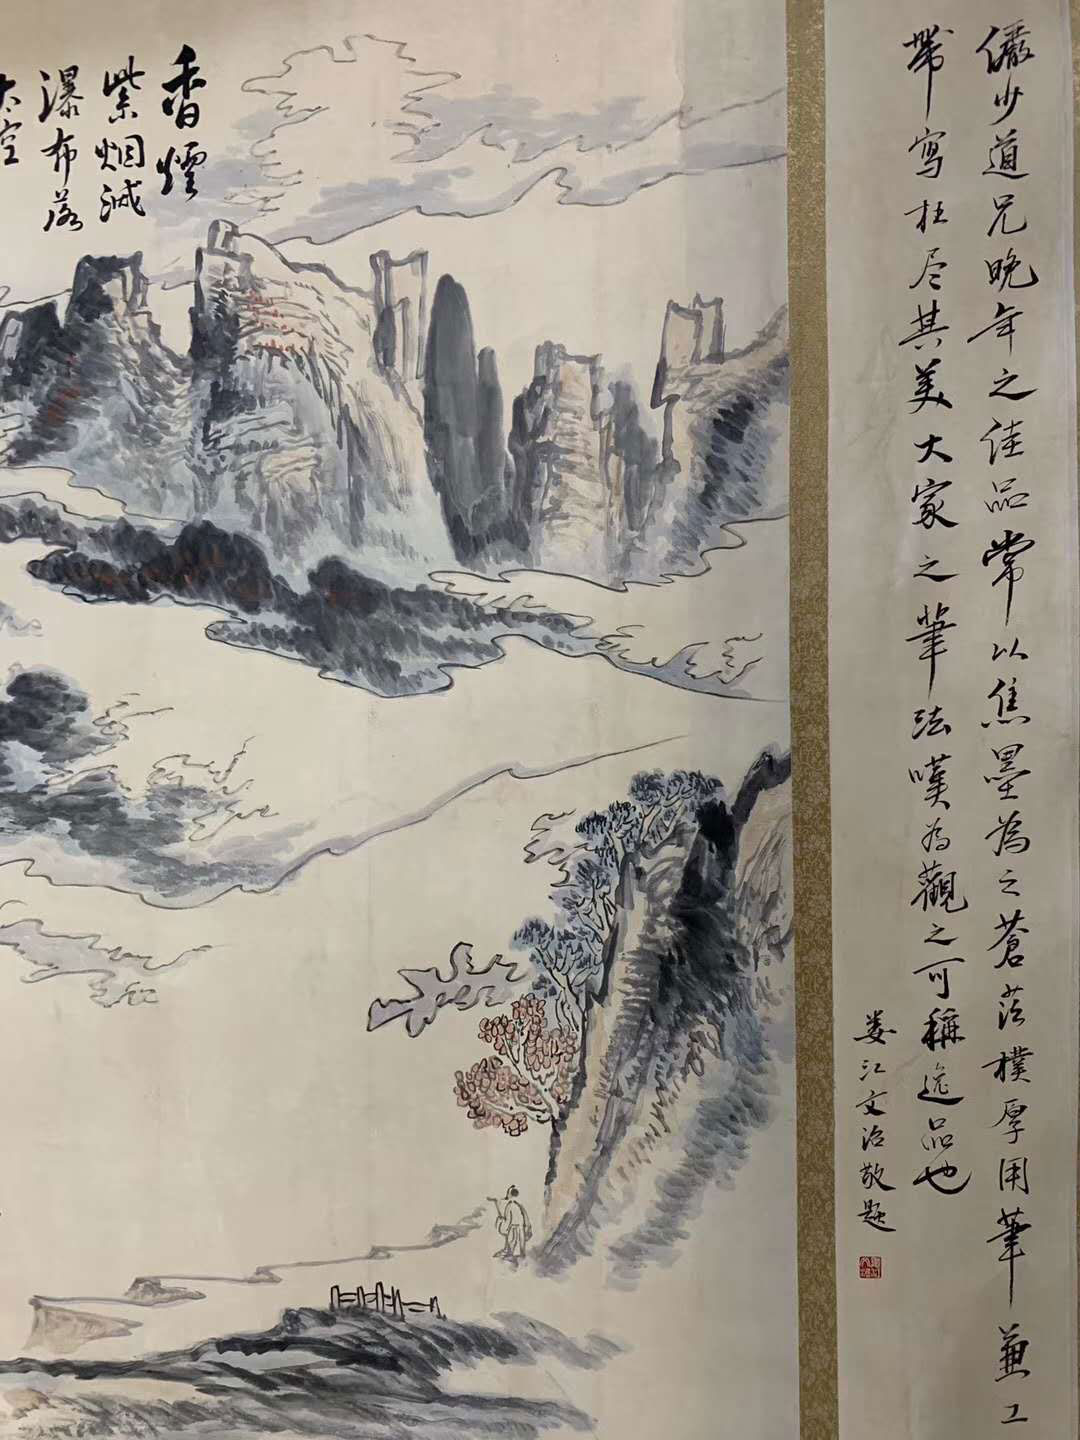 儼少道兄晚年之佳品常以焦墨為之蒼茫樸厚用筆兼工
帶寫極尽其美大家之筆法嘆為觀之可稱逸品也
娄江文治敬題
香煙
紫烟滅
瀑布落
太空